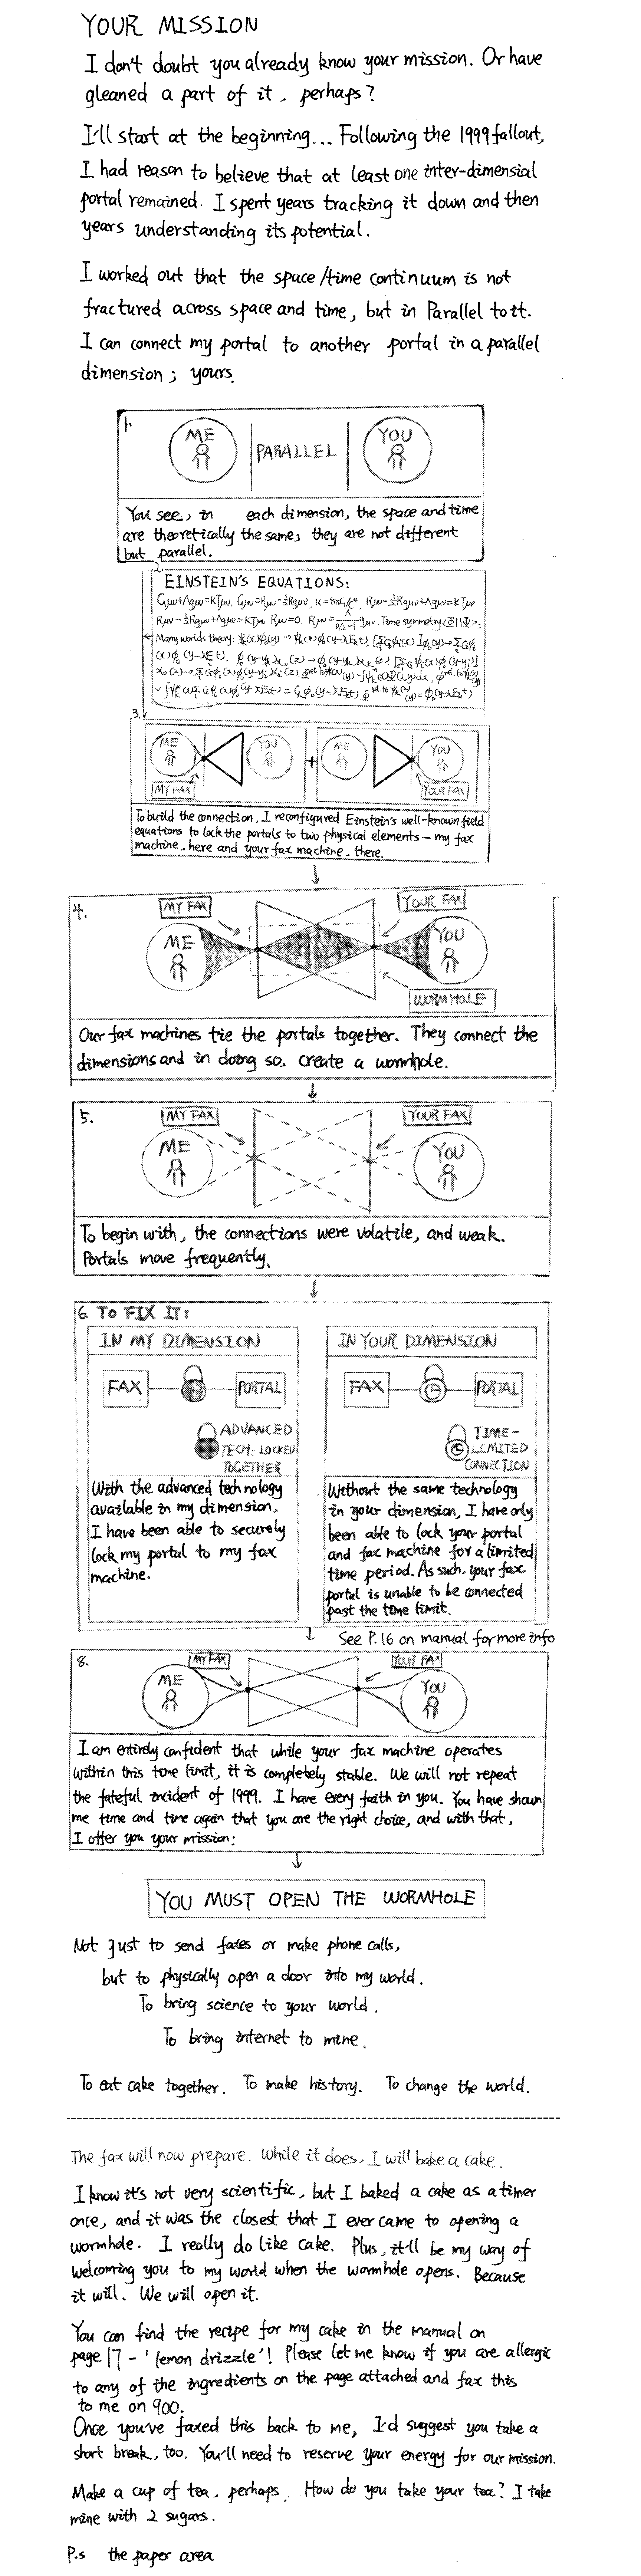 YOUR MISSION
I don't doubt you already know your mission. Or have
gleaned a part of it, perhaps?
I'll start at the beginning... Following the 1999 fallout,
I had reason to believe that at least one inter-dimensial
portal remained. I spent years tracking it down and then
years understanding its potential.
I worked out that the space/time continuum is not
fractured across space and time, but in Parallel to it.
I can connect my portal to another portal in a parallel
dimension; yours.
1.
ME
PARALLEL
YOU
You see, in each dimension, the space and time
are theoretically the same, they are not different
but parallel.
2.
EINSTEIN'S EQUATIONS:
Time symmetry
Many worlds theory:
3.
ME
YOU
+
ME
YOU
MY FAX
YOUR FAX
To build the connection, I reconfigured Einstein's well-known field
equations to lock the portals to two physical elements - my fax
machine, here and your fax machine, there.
4.
MY FAX
YOUR FAX
ME
YOU
WORMHOLE
Our fax machines tie the portals together. They connect the
dimensions and in doing so, create a wormhole.
5.
MY FAX
YOUR FAX
ME
YOU
To begin with, the connections were volatile, and weak.
Portals move frequently.
6. TO FIX IT:
IN MY DIMENSION
FAX
PORTAL
ADVANCED
TECH: LOCKED
TOGETHER
With the advanced technology
available in my dimension,
I have been able to securely
lock my portal to my fax
machine.
IN YOUR DIMENSION
FAX
PORTAL
TIME-
LIMITED
CONNECTION
Without the same technology
in your dimension, I have only
been able to lock your portal
and fax machine for a limited
time period. As such, your fax
portal is unable to be connected
past the time limit.
See P.16 on manual for more info
8.
MY FAX
YOUR FAX
ME
YOU
I am entirely confident that while your fax machine operates
within this time limit, it is completely stable. We will not repeat
the fateful incident of 1999. I have every faith in you. You have shown
me time and time again that you are the right choice, and with that,
I offer you your mission:
YOU MUST OPEN THE WORMHOLE
Not just to send faxes or make phone calls,
but to physically open a door into my world.
To bring science to your world.
To bring internet to mine.
To eat cake together. To make history. To change the world.
The fax will now prepare. While it does, I will bake a cake.
I know it's not very scientific, but I baked a cake as a timer
once, and it was the closest that I ever came to opening a
wormhole. I really do like cake. Plus, it'll be my way of
welcoming you to my world when the wormhole opens. Because
it will. We will open it.
You can find the recipe for my cake in the manual on
page 17 - 'lemon drizzle'! Please let me know if you are allergic
to any of the ingredients on the page attached and fax this
to me on 900.
Once you've faxed this back to me, I'd suggest you take a
short break, too. You'll need to reserve your energy for our mission.
Make a cup of tea, perhaps. How do you take your tea? I take
mine with 2 sugars.
P.s the paper area